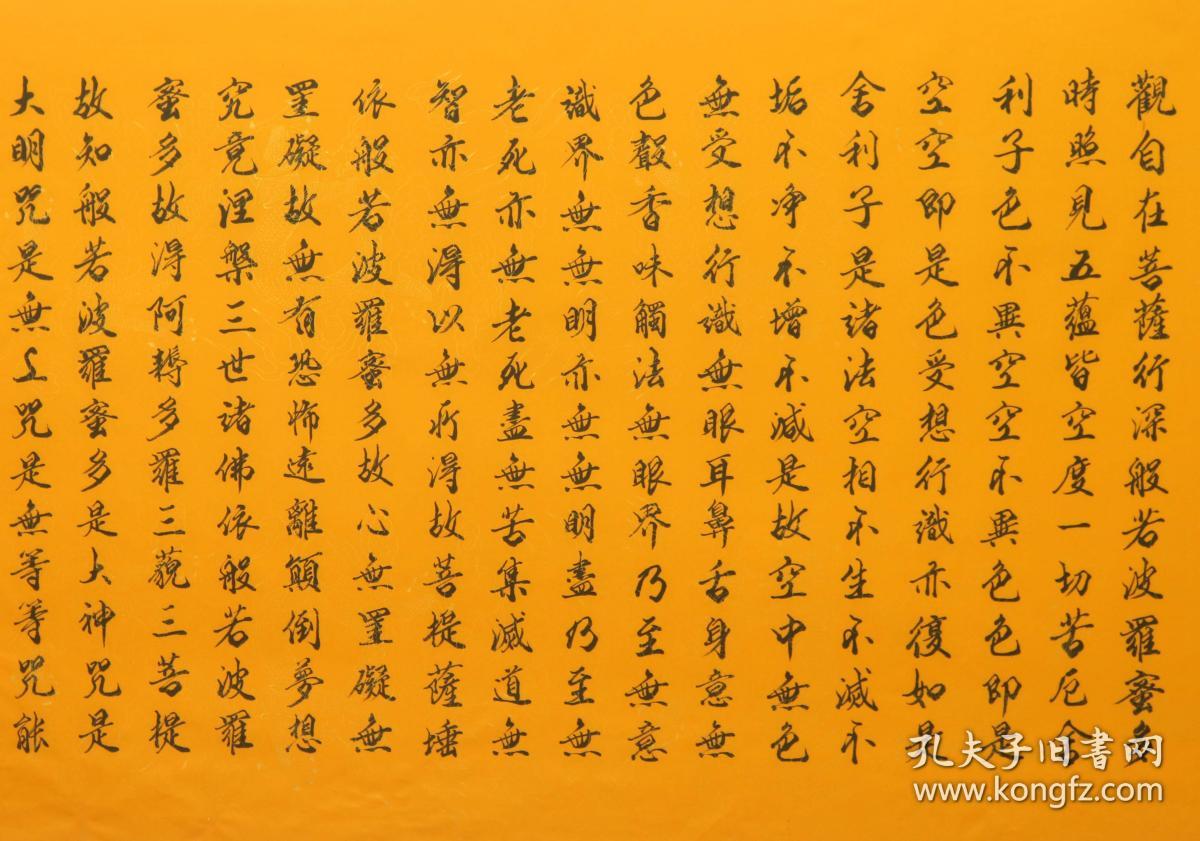 觀自在菩薩行深般若波羅蜜多
時照見五蘊皆空度一切苦厄舍
利子色不異空空不異色色即是
空空即是色受想行識亦復如是
舍利子是諸法空相不生不滅不
垢不净不增不減是故空中無色
無受想行識無眼耳鼻舌身意無
色聲香味觸法無眼界乃至無意
識界無無明亦無無明盡乃至無
老死亦無老死盡無苦集滅道無
智亦無得以無所得故菩提薩埵
依般若波羅蜜多故心無罣礙無
罣礙故無有恐怖遠離顛倒夢想
究竟涅槃三世諸佛依般若波羅
蜜多故得阿耨多羅三藐三菩提
故知般若波羅蜜多是大神咒是
大明咒是無上咒是無等等咒能
孔夫子旧書网
www.kongfz.com